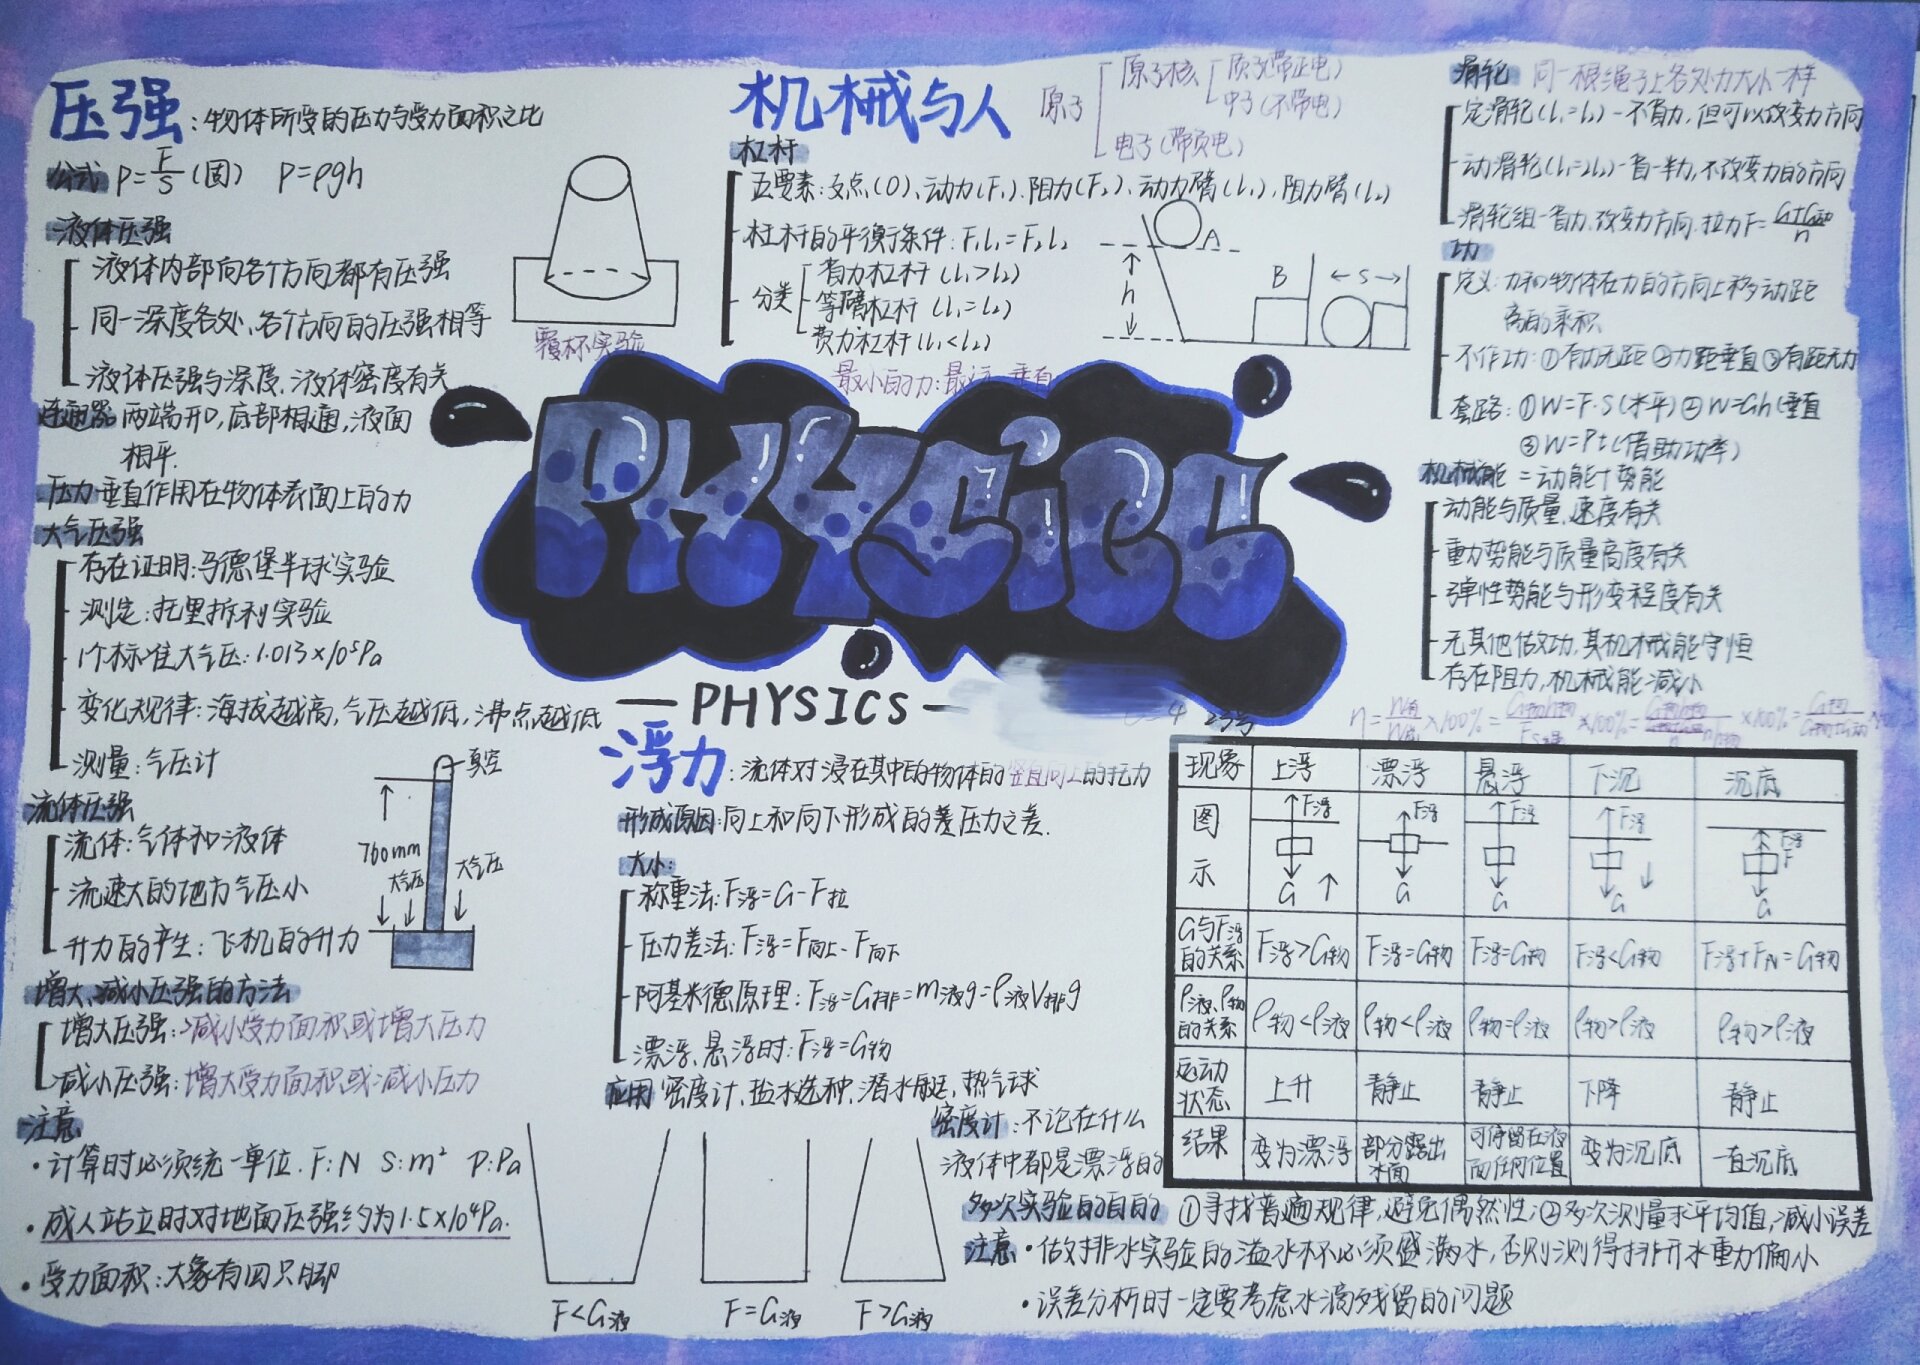 压强:物体所受的压力与受力面积之比
公式 P=F/S(固) P=ρgh
液体压强
液体内部向各个方向都有压强
同一深度各处、各个方向的压强相等
液体压强与深度、液体密度有关
连通器 两端开口,底部相通,液面
相平.
压力-垂直作用在物体表面上的力
大气压强
存在证明:马德堡半球实验
测定:托里拆利实验
1个标准大气压:1.013×10⁵Pa
变化规律:海拔越高,气压越低,沸点越低
测量:气压计
真空
760mm
大气压
大气压
流体压强
流体:气体和液体
流速大的地方气压小
升力的产生:飞机的升力
增大、减小压强的方法
增大压强:减小受力面积或增大压力
减小压强:增大受力面积或减小压力
注意
·计算时必须统一单位.F:N S:m² P:Pa
·成人站立时对地面压强约为1.5×10⁴Pa.
·受力面积:大象有四只脚
覆杯实验
机械与人
原子
原子核
质子(带正电)
中子(不带电)
电子(带负电)
杠杆
五要素:支点(O)、动力(F₁)、阻力(F₂)、动力臂(L₁)、阻力臂(L₂)
杠杆的平衡条件:F₁L₁=F₂L₂
分类
省力杠杆(L₁>L₂)
等臂杠杆(L₁=L₂)
费力杠杆(L₁<L₂)
最小的力:最远 垂直
A
h
B
←S→
滑轮 同一根绳子上各处力大小一样
定滑轮(L₁=L₂)-不省力,但可以改变力方向
动滑轮(L₁=2L₂)-省一半力,不改变力的方向
滑轮组-省力,改变力方向.拉力F=(G+G动)/n
功
定义:力和物体在力的方向上移动距
离的乘积
不作功:①有力无距②力距垂直③有距无力
套路:①W=F·S(水平)②W=Gh(垂直
③W=Pt(借助功率)
机械能=动能+势能
动能与质量、速度有关
重力势能与质量高度有关
弹性势能与形变程度有关
无其他做功,其机械能守恒
存在阻力,机械能减小
PHYSICS
—PHYSICS—
浮力:流体对浸在其中的物体的竖直向上的托力
形成原因:向上和向下形成的差压力之差.
大小:
称重法:F浮=G-F拉
压力差法:F浮=F向上-F向下
阿基米德原理:F浮=G排=m液g=ρ液V排g
漂浮、悬浮时:F浮=G物
应用 密度计、盐水选种、潜水艇、热气球
密度计:不论在什么
液体中都是漂浮的
F<G液
F=G液
F>G液
现象 上浮 漂浮 悬浮 下沉 沉底
图 F浮 F浮 F浮 F浮 F浮 F
示 G G G G G
G与F浮的关系 F浮>G物 F浮=G物 F浮=G物 F浮<G物 F浮+FN=G物
ρ液、ρ物的关系 ρ物<ρ液 ρ物<ρ液 ρ物=ρ液 ρ物>ρ液 ρ物>ρ液
运动状态 上升 静止 静止 下降 静止
结果 变为漂浮 部分露出水面 可停留在液面任何位置 变为沉底 一直沉底
多次实验的目的 ①寻找普遍规律,避免偶然性;②多次测量求平均值,减小误差
注意·做对排水实验的溢水杯必须盛满水,否则测得排开水重力偏小
·误差分析时一定要考虑水滴残留的问题